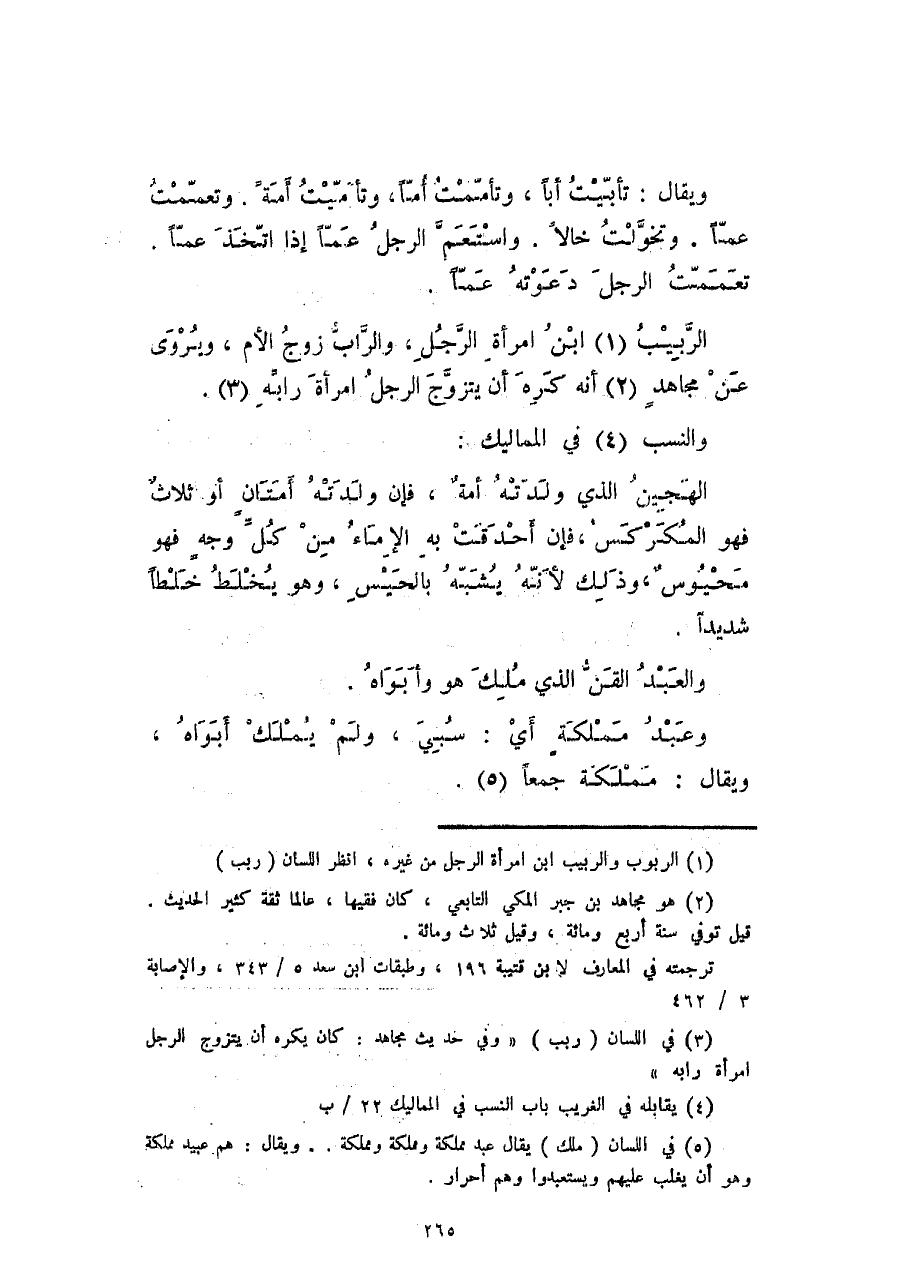 ويقال : تأبَّيْتُ أباً ، وتأمَّمْتُ أُمّاً، وتأمَّيْتُ أَمَةً . وتعمَّمْتُ
عمّاً . وتخوَّلْتُ خالاً . واسْتَعَمَّ الرجلُ عَمّاً إذا اتّخَذَ عمّاً .
تعَمَّمْتُ الرجلَ دَعَوْتهُ عَمّاً .
الرَّبِيْبُ (١) ابْنُ امرأةِ الرَّجُلِ، والرَّابُّ زوجُ الأم ، ويُرْوَى
عَنْ مجاهدٍ (٢) أنه كَرِهَ أن يتزوَّجَ الرجلُ امرأةَ رابِّهِ (٣) .
والنسب (٤) في المماليك :
الهَجِينُ الذي ولَدَتْهُ أمةٌ ، فإن ولَدَتْهُ أَمَتَانِ أو ثلاثٌ
فهو المُكَرْكَسُ، فإن أَحْدَقَتْ بهِ الإمَاءُ مِنْ كُلِّ وجهٍ فهو
مَحْيُوسٌ، وذَلِك لأَنَّهُ يُشَبَّهُ بالحَيْسِ ، وهو يُخْلَطُ خَلْطاً
شديداً .
والعَبْدُ القِنُّ الذي مُلِكَ هو وأَبَوَاهُ .
وعَبْدُ مَمْلكَةٍ أَيْ : سُبِيَ ، ولَمْ يُمْلَكْ أَبَوَاهُ ،
ويقال : مَمْلَكَة جمعاً (٥) .
(١) الربوب والربيب ابن امرأة الرجل من غيره ، انظر اللسان ( ربب )
(٢) هو مجاهد بن جبر المكي التابعي ، كان فقيها ، عالما ثقة كثير الحديث .
قيل توفي سنة أربع ومائة ، وقيل ثلاث ومائة .
ترجمته في المعارف لابن قتيبة ١٩٦ ، وطبقات ابن سعد ٥ / ٣٤٣ ، والإصابة
٣ / ٤٦٢
(٣) في اللسان ( ربب ) « وفي حديث مجاهد : كان يكره أن يتزوج الرجل
امرأة رابه »
(٤) يقابله في الغريب باب النسب في المماليك ٢٢ / ب
(٥) في اللسان ( ملك ) يقال عبد مملكة ومملكة ومملكة . . ويقال : هم عبيد مملكة
وهو أن يغلب عليهم ويستعبدوا وهم أحرار .
٢٦٥